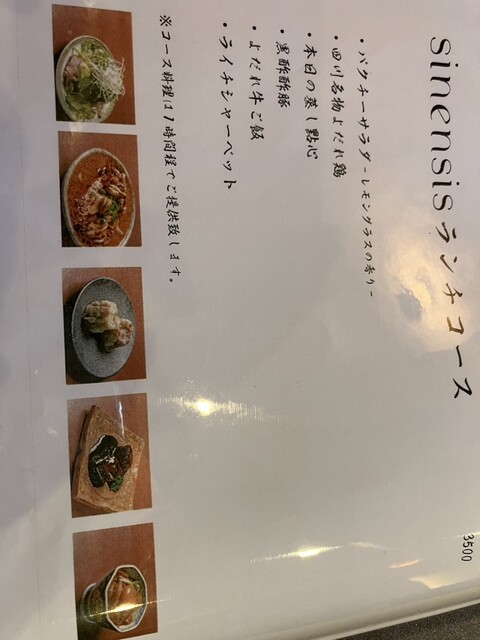 sinensisランチコース
3500
・パクチーサラダ-レモングラスの香り-
・四川名物よだれ鶏
・本日の蒸し點心
・黒酢酢豚
・よだれ牛ご飯
・ライチシャーベット
※コース料理は1時間程でご提供致します。